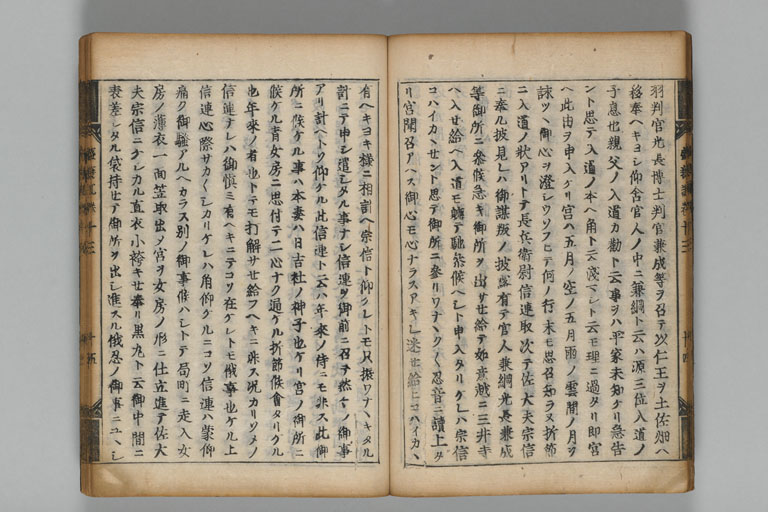 羽判官光長博士判官兼成等ヲ召テ以仁王ヲ土佐畑ヘ
移奉ヘキヨシ仰含官人ノ中ニ兼綱ト云ハ源三位入道ノ
子息也親父ノ入道カ勸ト云事ヲハ平家未知ケリ急告
ント思テ入道ノ本ヘ角ト云
ヘ此由ヲ申入ケリ宮ハ五月ノ空ノ五月雨ノ雲間ノ月ヲ
詠ツヽ御心ヲ澄シウソフヒテ何ノ行末モ思召知ラヌ折節
ニ入道ノ狀アリトテ長兵衛尉信連取次テ佐大夫宗信
ニ奉ル披見レハ御謀叛ノ披露有テ官人兼綱光長兼成
等御所ニ參候急キ御所ヲ出サセ給テ如意越ニ三井寺
ヘ入セ給ヘ入道モ馳參候ヘシト申入タリケレハ宗信
コハイカヽセント思テ御所ニ參リワナヽクヽ忍音ニ讀上タ
リ宮聞召アヘス御心モ心ナラスアキレ迷セ給ヒコハイカヽ
有ヘキヨキ樣ニ相計ヘ宗信ト仰ケレトモ只振ワナヽキタル
計ニテ申シ遣シタル事ナシ信連ヲ御前ニ召テ然々ノ御事
アリ計ヘトソ仰ケル此信連ト云ハ年來ノ侍ニモ非ス此御
所ニ候ケル事ハ本妻ハ日吉社ノ神子也ケリ宮ノ御所ニ
候ケル青女房ニ思付テ二心ナク通ケル折節候會タリケル
也年來ノ者也トテモ打解サセ給フヘキニ非ス况カリソメノ
信連ナレハ御愼ミ有ヘキニテコソ在ケレトモ俄事也ケル上
信連心際サカ〱シカリケレハ角仰ケルニコソ信連ハ蒙仰
痛ク御騷アルヘカラス別ノ御事候ハシトテ局町ニ走入女
房ノ薄衣一面笠取出タ宮ヲ女房ノ形ニ仕立進テ佐大
夫宗信ニケシカル直衣小袴キセ奉リ黑丸ト云御中間ニ
表差シタル袋持セテ御所ヲ出シ進スル俄忍ノ御事ニユヽシ